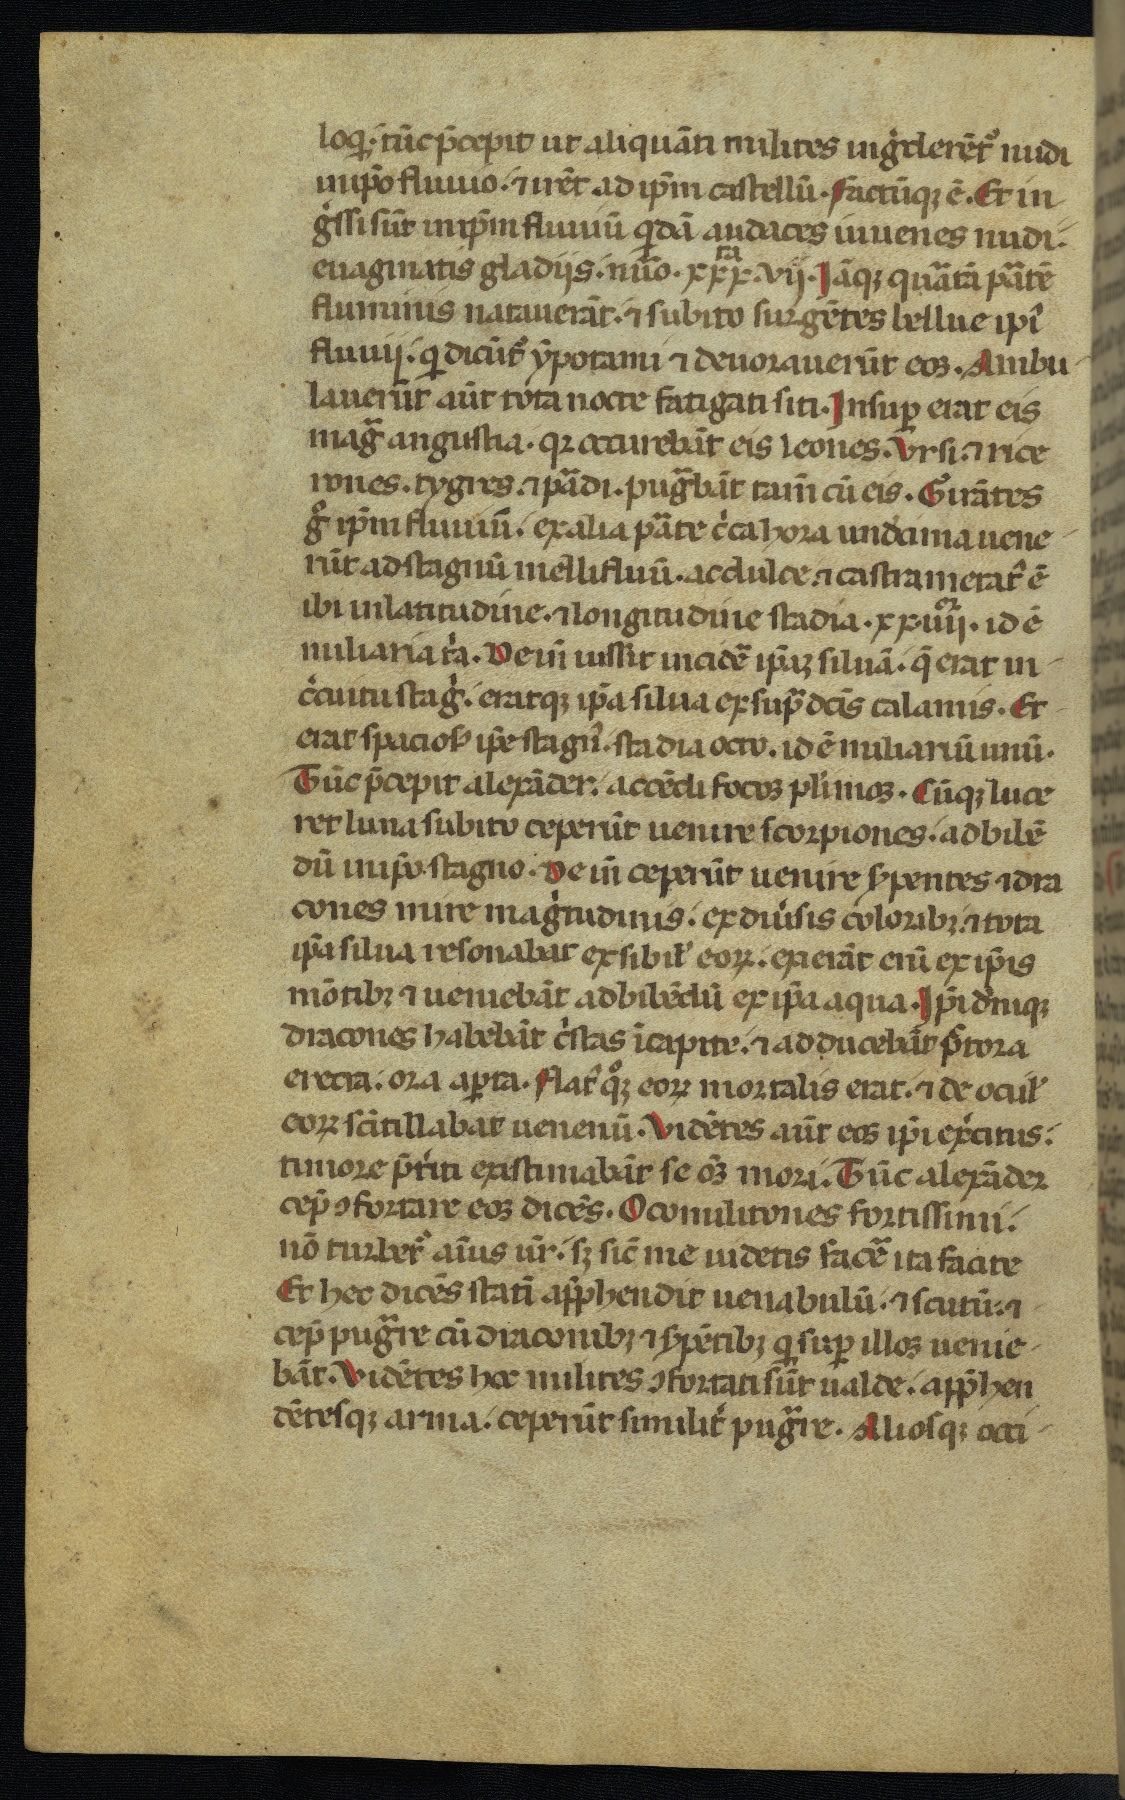 loq̄. tūc p̄cepit ut aliquāti milites ingᵉderēt᷑ nudi
in ip̄o fluuio. ⁊ irēt ad ip̄m castellū. factūqꝫ ē. Et in
gᵉssi sūt in ip̄m fluuiū q̄dā audaces iuuenes nudi.
euaginatis gladijs. nūo. xxx.vij. Iāqꝫ quᵃtā pᵃtē
fluminis natauerāt. ⁊ subito surgētes bellue ip̄i
fluuij. q̄ dicūt᷑ ypotami ⁊ deuorauerūt eos. Ambu
lauerūt aūt tota nocte fatigati siti. Insuꝑ erat eis
magᵃ angustia. qꝛ occurebāt eis leones. Vrsi. ⁊ rice
rones. tygres. ⁊ pᵃdi. pugᵃbāt tam̄ cū eis. Girātes
gͦ ip̄m fluuiū. ex alia pᵃte cⁱca hora undecima uene
rūt ad stagnū mellifluū. ac dulce. ⁊ castrametat᷑ ē
ibi in latitudine. ⁊ longitudine stadia. xx.iiij. id ē
miliaria tⁱa. Dein̄ iussit incidē ip̄aꝫ siluā. q̄ erat in
cⁱcuitu stagⁱ. eratqꝫ ip̄a silua ex supᵃdcīs calamis. Et
erat spacios᷑ ip̄e stagn᷑. stadia octo. id ē miliariū unū.
Tūc p̄cepit alexāder. accēdi focos plⁱmos. Cūqꝫ luce
ret luna subito ceperūt uenire scorpiones. ad bibē
dū in ip̄o stagno. Dein̄ ceperūt uenire s̄pentes ⁊ dra
cones mire magⁱtudinis. ex diūsis coloribꝫ. ⁊ tota
ip̄a silua resonabat ex sibil᷑ eoꝝ. exierāt enī ex ip̄is
mōtibꝫ ⁊ ueniebāt ad bibēdū ex ip̄a aqua. Ip̄i deniqꝫ
dracones habebāt cⁱstas ī capite. ⁊ adducebāt pectora
erecta. ora aꝑta. flat᷑ qͦꝫ eoꝝ mortalis erat. ⁊ de ocul᷑
eoꝝ scītillabat uenenū. Vidētes aūt eos ip̄i exercitus.
timore p̄tⁱti existimabāt se oēs mori. Tūc alexāder
cep̄ ꝯfortare eos dicēs. O comilitones fortissimi.
nō turbet᷑ aīus ur̄. sꝫ sic̄ me uidetis facē ita facite
Et hec dicēs statī app̄hendit uenabulū. ⁊ scutū. ⁊
cep̄ pugᵃre cū draconibꝫ ⁊ s̄pētibꝫ q̄ suꝑ illos uenie
bāt. Vidētes hoc milites ꝯfortati sūt ualde. app̄hen
dētesqꝫ arma. ceperūt similit᷑ pugᵃre. Aliosqꝫ occi